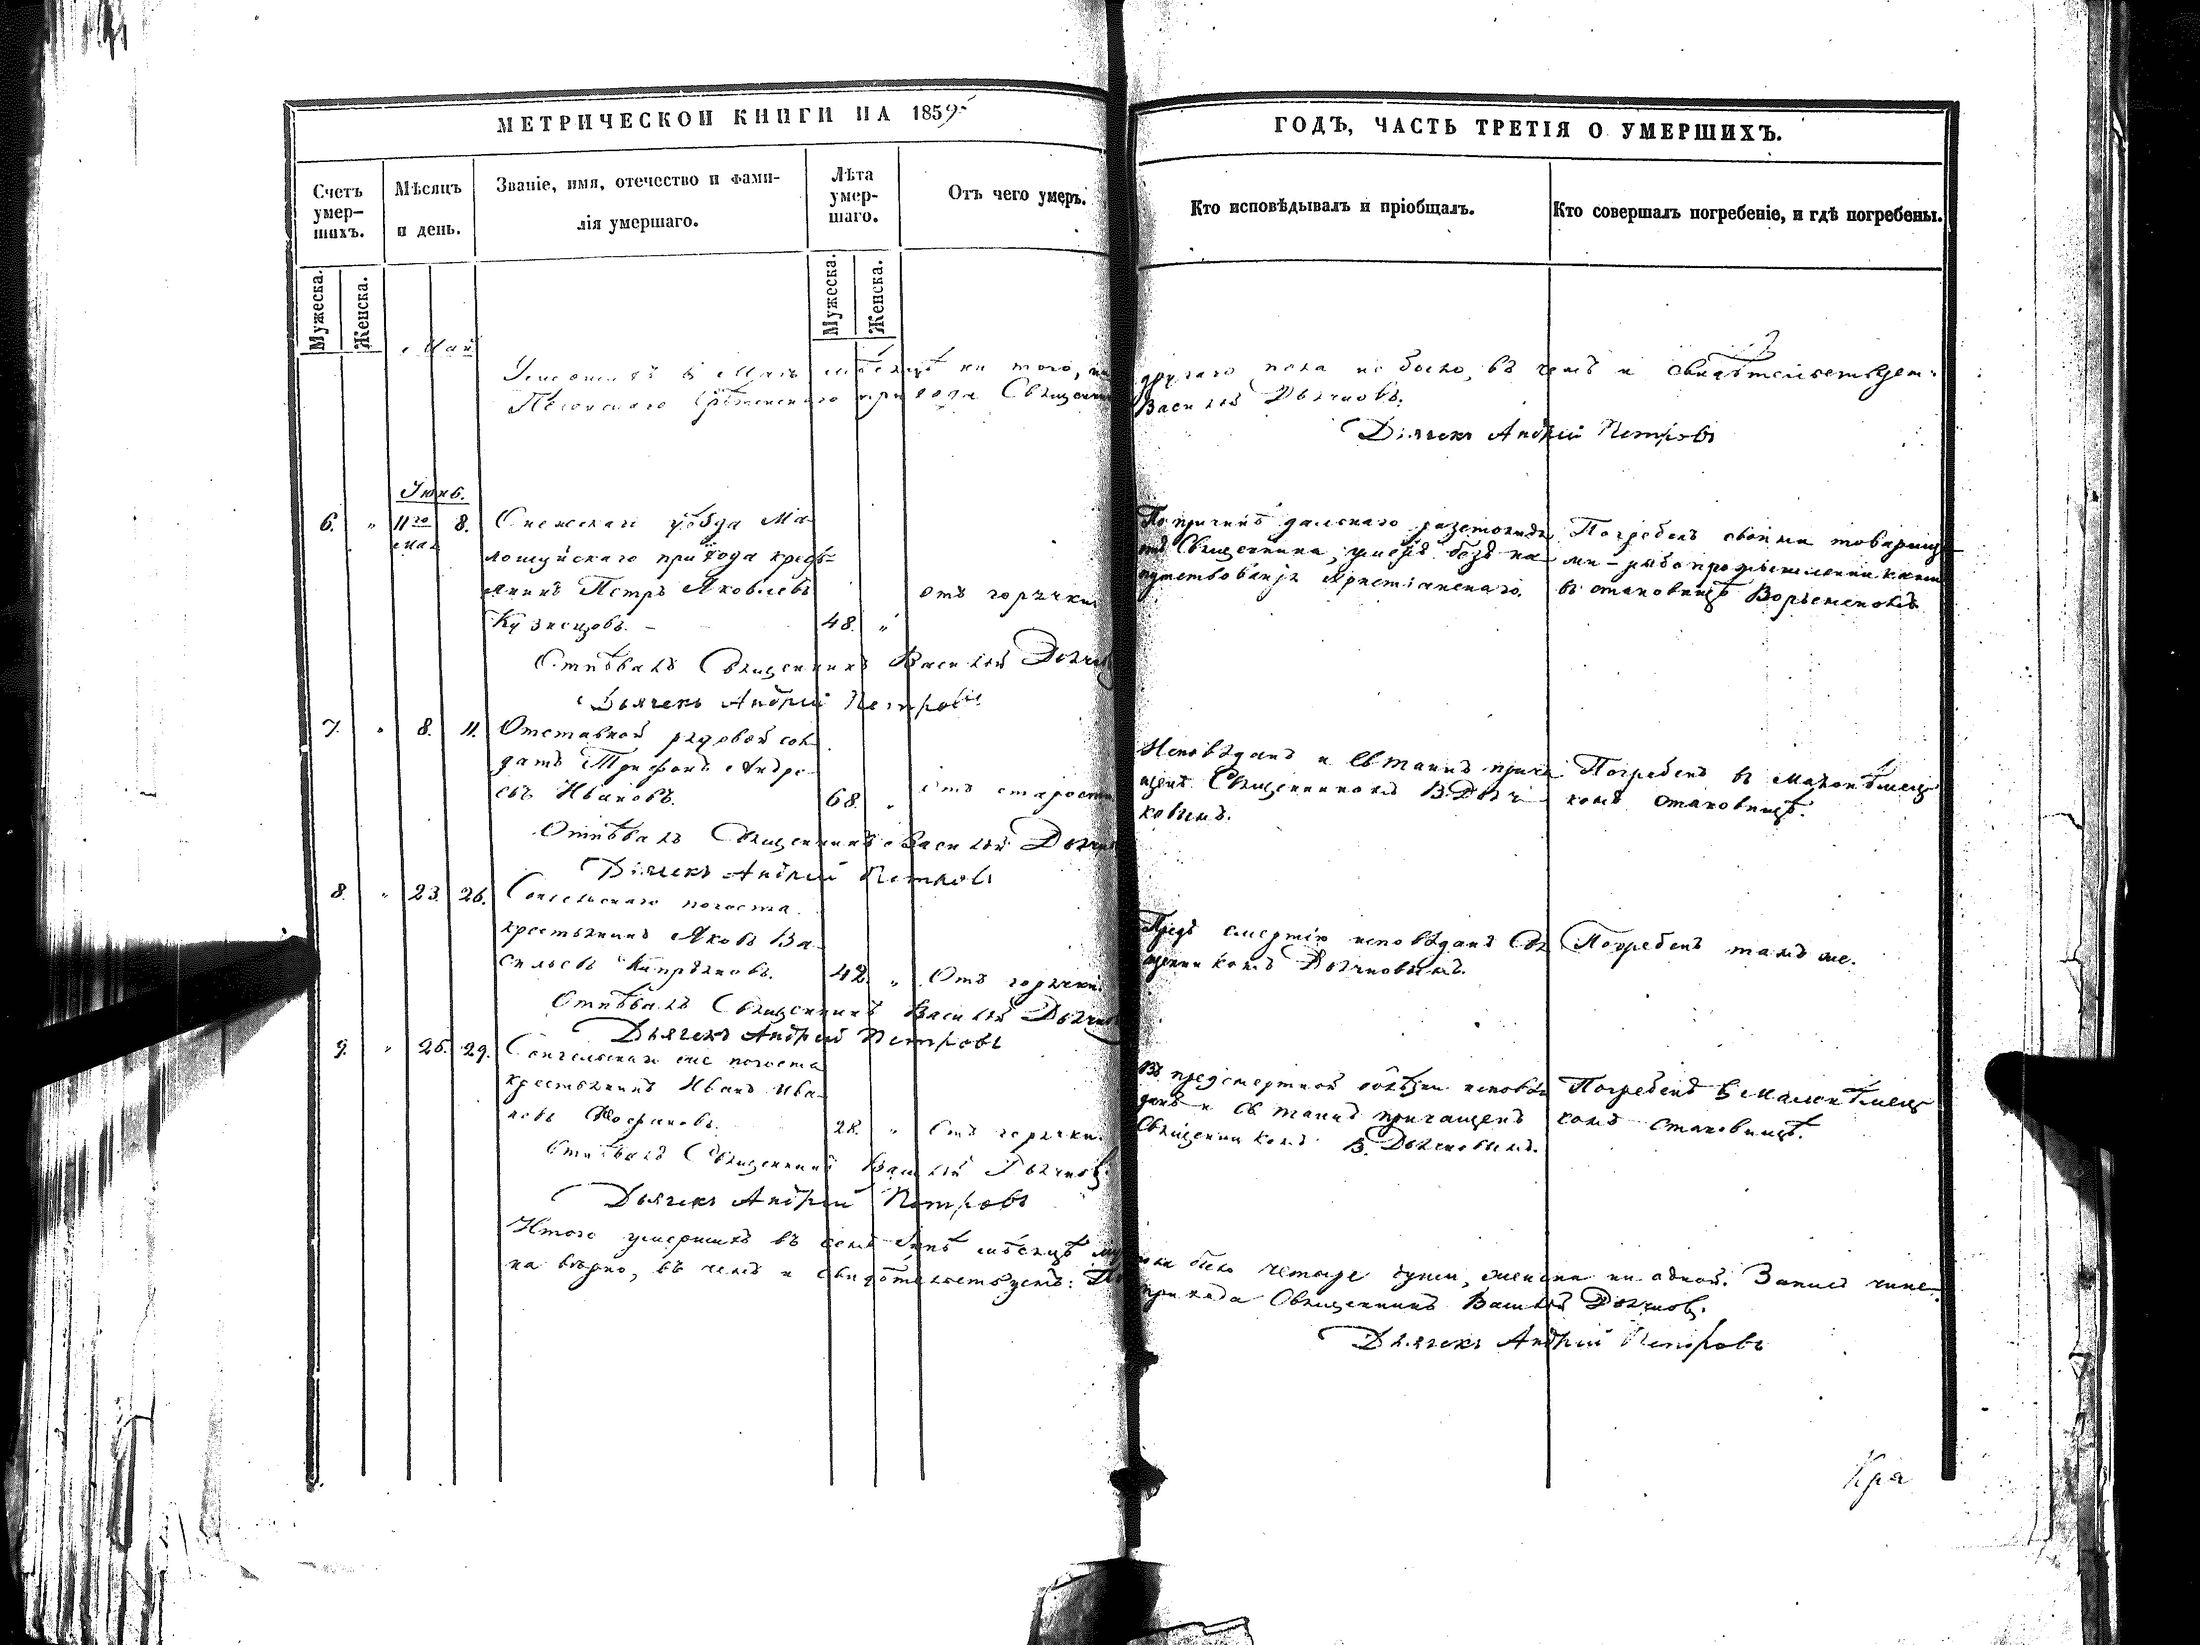 МЕТРИЧЕСКОЙ КНИГИ НА 1859
ГОДЪ, ЧАСТЬ ТРЕТІЯ О УМЕРШИХЪ.
Счетъ умер-
шихъ.
Мѣсяцъ
и день.
Званіе, имя, отечество и фами-
лія умершаго.
Лѣта
умер-
шаго.
Отъ чего умеръ.
Кто исповѣдывалъ и пріобщалъ.
Кто совершалъ погребеніе, и гдѣ погребены.
Мужеска.
Женска.
Мужеска.
Женска.
Май
Умершихъ въ Маѣ мѣсяцѣ ни того, ни другаго пола не было, въ чемъ и свидѣтельствуетъ:
прихода Священникъ Василій
Дьячекъ Андрей Петровъ
Іюнь.
6. " 11го 8. Онежскаго уѣзда Ма-
мая
лошуйскаго прихода кресть-
янинъ Петръ Яковлевъ отъ горячки
Кузнецовъ. 48. "
По причинѣ дальнаго разстоянія
отъ Священника, умеръ безъ на-
путствованія христіанскаго.
Погребенъ своими товарища-
ми – рыбопромышленниками
въ становищѣ
Отпѣвалъ Священникъ Василій
Дьячекъ Андрей Петровъ
7. " 8. 11. Отставной рядовой сол-
датъ Трифонъ Андре-
евъ Ивановъ. 68. " отъ старости
Исповѣданъ и Св. Таинъ прича-
щенъ Священникомъ В.
ковымъ.
Погребенъ въ
комъ становищѣ.
Отпѣвалъ Священникъ Василій
Дьячекъ Андрей Петровъ
8. " 23. 26. погоста
крестьянинъ Яковъ Ва-
сильевъ 42. " Отъ горячки.
Предъ смертію исповѣданъ Свя-
щенникомъ
Погребенъ тамъ же.
Отпѣвалъ Священникъ Василій
Дьячекъ Андрей Петровъ
9. " 26. 29. же погоста
крестьянинъ Иванъ Ива-
новъ 28. " Отъ горячки.
Въ предсмертной болѣзни исповѣ-
данъ и Св. Таинъ причащенъ
Священникомъ В.
Погребенъ въ
комъ становищѣ.
Отпѣвалъ Священникъ Василій
Дьячекъ Андрей Петровъ
Итого умершихъ въ семъ Іюнѣ мѣсяцѣ было четыре души, женска ни одной. Запись чине-
на вѣрно, въ чемъ и свидѣтельствуемъ: прихода Священникъ Василій
Дьячекъ Андрей Петровъ
Кря